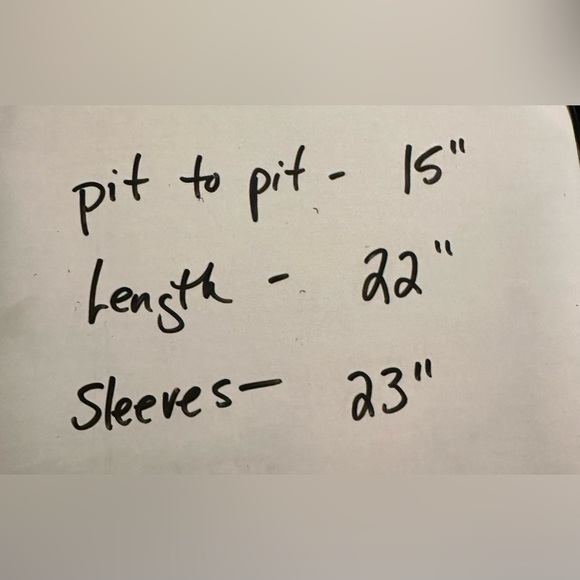 pit to pit - 15"
Length - 22"
Sleeves - 23"